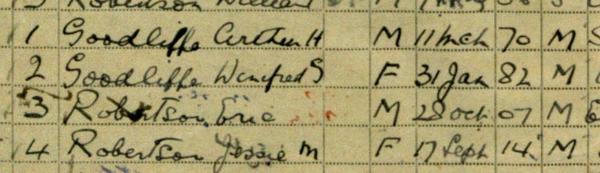 Robertson William M
1 Goodliffe Arthur H M 11 Mch 70 M S
2 Goodliffe Winifred S F 31 Jan 82 M
3 Robertson Eric M 28 Oct 07 M
4 Robertson Jessie M F 17 Sept 14 M